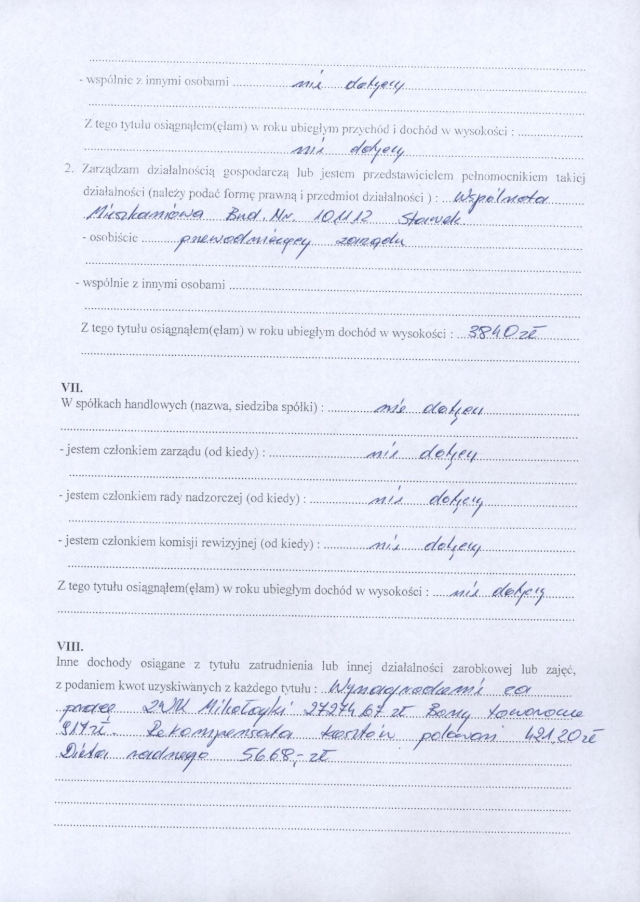 - wspólnie z innymi osobami nie dotyczy
Z tego tytułu osiągnąłem(ęłam) w roku ubiegłym przychód i dochód w wysokości :
nie dotyczy
2. Zarządzam działalnością gospodarczą lub jestem przedstawicielem pełnomocnikiem takiej
działalności (należy podać formę prawną i przedmiot działalności ) : Wspólnota
Mieszkaniowa Bud. Nr. 10,11,12 Stawek
- osobiście przewodniczący zarządu
- wspólnie z innymi osobami
Z tego tytułu osiągnąłem(ęłam) w roku ubiegłym dochód w wysokości : 3840 zł
VII.
W spółkach handlowych (nazwa, siedziba spółki) : nie dotyczy
- jestem członkiem zarządu (od kiedy) : nie dotyczy
- jestem członkiem rady nadzorczej (od kiedy) : nie dotyczy
- jestem członkiem komisji rewizyjnej (od kiedy) : nie dotyczy
Z tego tytułu osiągnąłem(ęłam) w roku ubiegłym dochód w wysokości : nie dotyczy
VIII.
Inne dochody osiągane z tytułu zatrudnienia lub innej działalności zarobkowej lub zajęć,
z podaniem kwot uzyskiwanych z każdego tytułu : Wynagrodzenie za
pracę Mikołajki 27274,67 zł Bony towarowe
917 zł. Rekompensata kosztów 421,20 zł
Dieta radnego 5668,- zł